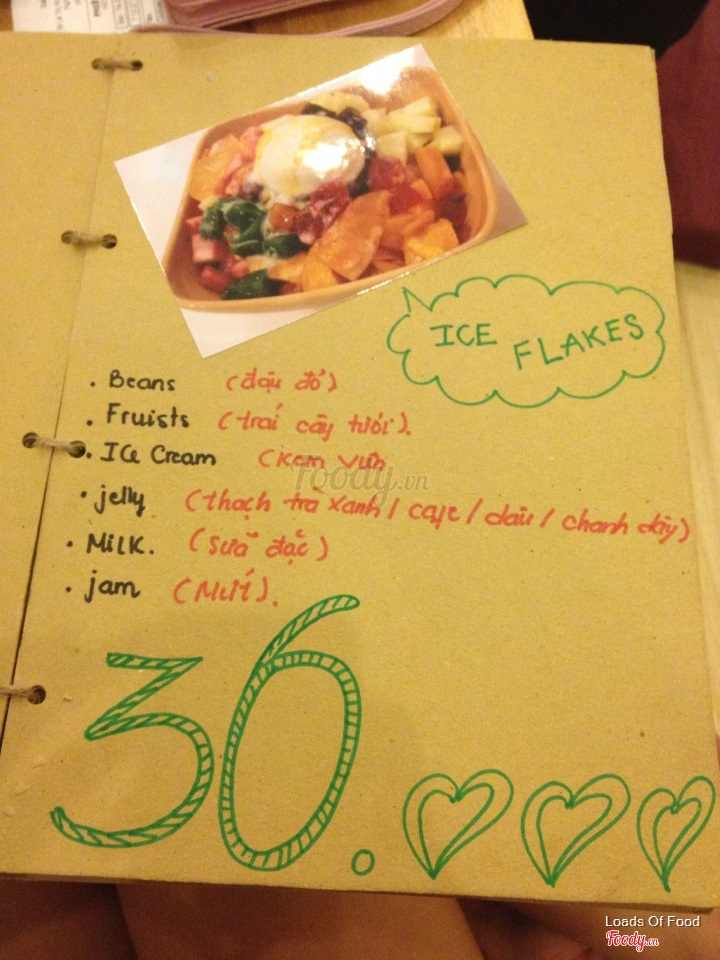 ICE FLAKES
. Beans (đậu đỏ)
. Fruists (trái cây tươi).
. ICe Cream (Kem vừn
. jelly (thạch trà xanh / cafe / dâu / chanh dây)
. MILK. (sữa đặc)
. jam (Mứt).
36.
Foody.vn
Loads Of Food
Foody.vn